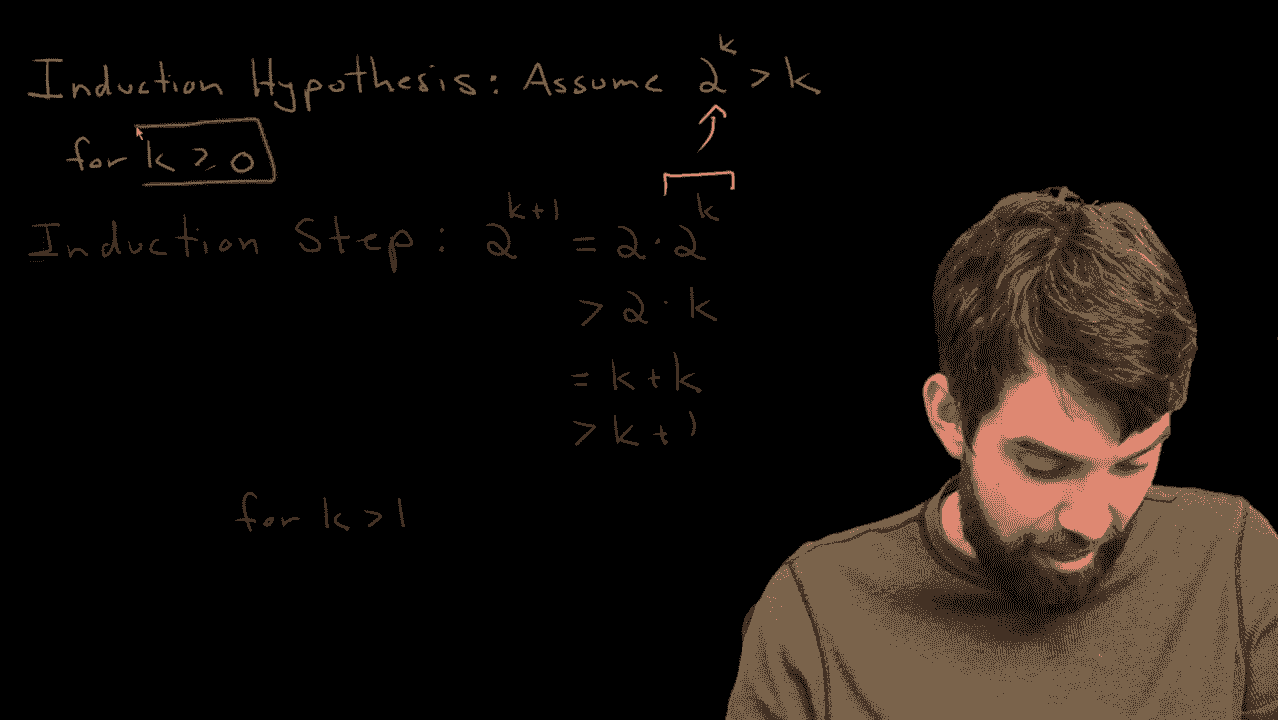 Induction Hypothesis: Assume 2^k > k
for k ≥ 0
Induction Step: 2^{k+1} = 2·2^k
> 2·k
= k+k
> k+1
for k>1